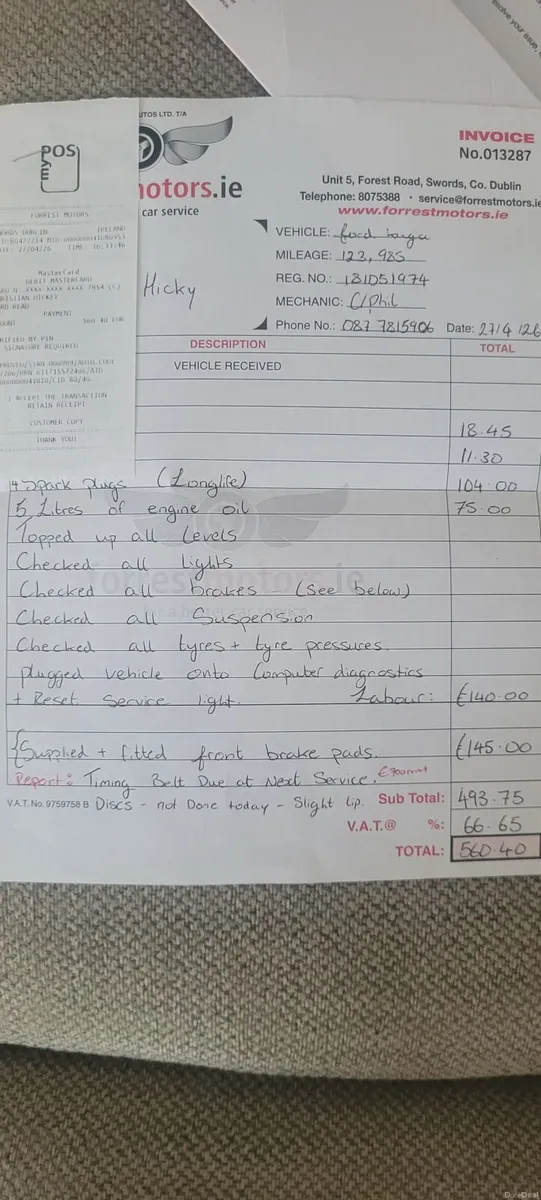 UTOS LTD. T/A
INVOICE
No.013287
motors.ie
car service
Unit 5, Forest Road, Swords, Co. Dublin
Telephone: 8075388 • service@forrestmotors.ie
www.forrestmotors.ie
VEHICLE: ford kuga
MILEAGE: 123,985
REG. NO.: 181D51974
MECHANIC: C/Phil
Phone No.: 087 7815906 Date: 27/4/26
Hicky
myPOS
FORREST MOTORS
IRELAND
MasterCard
DEBIT MASTERCARD
PAYMENT
560.40 EUR
SIGNATURE REQUIRED
I ACCEPT THE TRANSACTION
RETAIN RECEIPT
CUSTOMER COPY
THANK YOU!
DESCRIPTION TOTAL
VEHICLE RECEIVED
18.45
11.30
4 Spark plugs (Longlife) 104.00
5 Litres of engine oil 75.00
Topped up all levels
Checked all lights
Checked all brakes - (See below)
Checked all Suspension
Checked all tyres + tyre pressures.
plugged vehicle onto Computer diagnostics
+ Reset Service light. Labour: €140.00
Supplied + fitted front brake pads. €145.00
Report: Timing Belt Due at Next Service.
V.A.T. No. 9759758 B Discs - not Done today - Slight lip. Sub Total: 493.75
V.A.T.@ %: 66.65
TOTAL: 560.40
forrestmotors.ie
for a better car service
DoneDeal